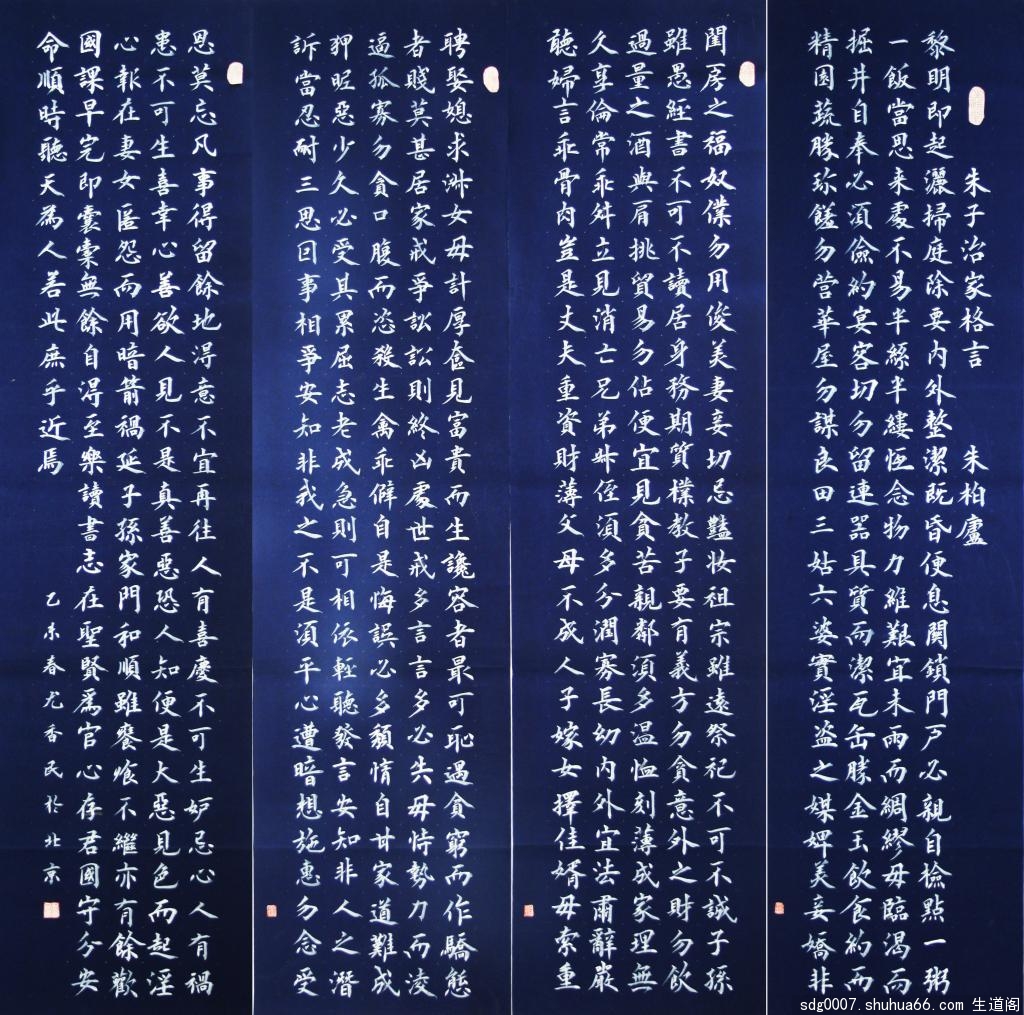 朱子治家格言 朱柏廬
黎明即起灑掃庭除要內外整潔既昏便息関鎖門戶必親自檢點一粥
一飯當思来處不易半絲半縷恆念物力維艱宜未雨而綢繆毋臨渴而
掘井自奉必須儉約宴客切勿留連器具質而潔瓦缶勝金玉飲食約而
精園蔬勝珍饈勿营華屋勿謀良田三姑六婆實淫盗之媒婢美妾嬌非
閨房之福奴僕勿用俊美妻妾切忌豔妝祖宗雖遠祭祀不可不誠子孫
雖愚經書不可不讀居身務期質樸教子要有義方勿貪意外之財勿飲
過量之酒與肩挑貿易勿佔便宜見貧苦親鄰須多温恤刻薄成家理無
久享倫常乖舛立見消亡兄弟叔侄須多分潤寡長幼內外宜法肅辭嚴
聽婦言乖骨肉豈是丈夫重資財薄父母不成人子嫁女擇佳婿毋索重
聘娶媳求淑女毋計厚奩見富貴而生讒容者最可恥遇貧窮而作驕態
者賤莫甚居家戒爭訟訟則終凶處世戒多言言多必失毋恃勢力而凌
逼孤寡勿貪口腹而恣殺生禽乖僻自是悔誤必多頹惰自甘家道難成
狎昵惡少久必受其累屈志老成急則可相依輕聽發言安知非人之潛
訴當忍耐三思因事相爭安知非我之不是須平心遭暗想施惠勿念受
恩莫忘凡事得留餘地得意不宜再往人有喜慶不可生妒忌心人有禍
患不可生喜幸心善欲人見不是真善惡恐人知便是大惡見色而起淫
心報在妻女匿怨而用暗箭禍延子孫家門和順雖饔飧不繼亦有餘歡
國課早完即囊橐無餘自得至樂讀書志在聖賢爲官心存君國守分安
命順時聽天爲人若此庶乎近焉
乙未春尤香民於北京
sdg0007.shuhua66.com 生道阁